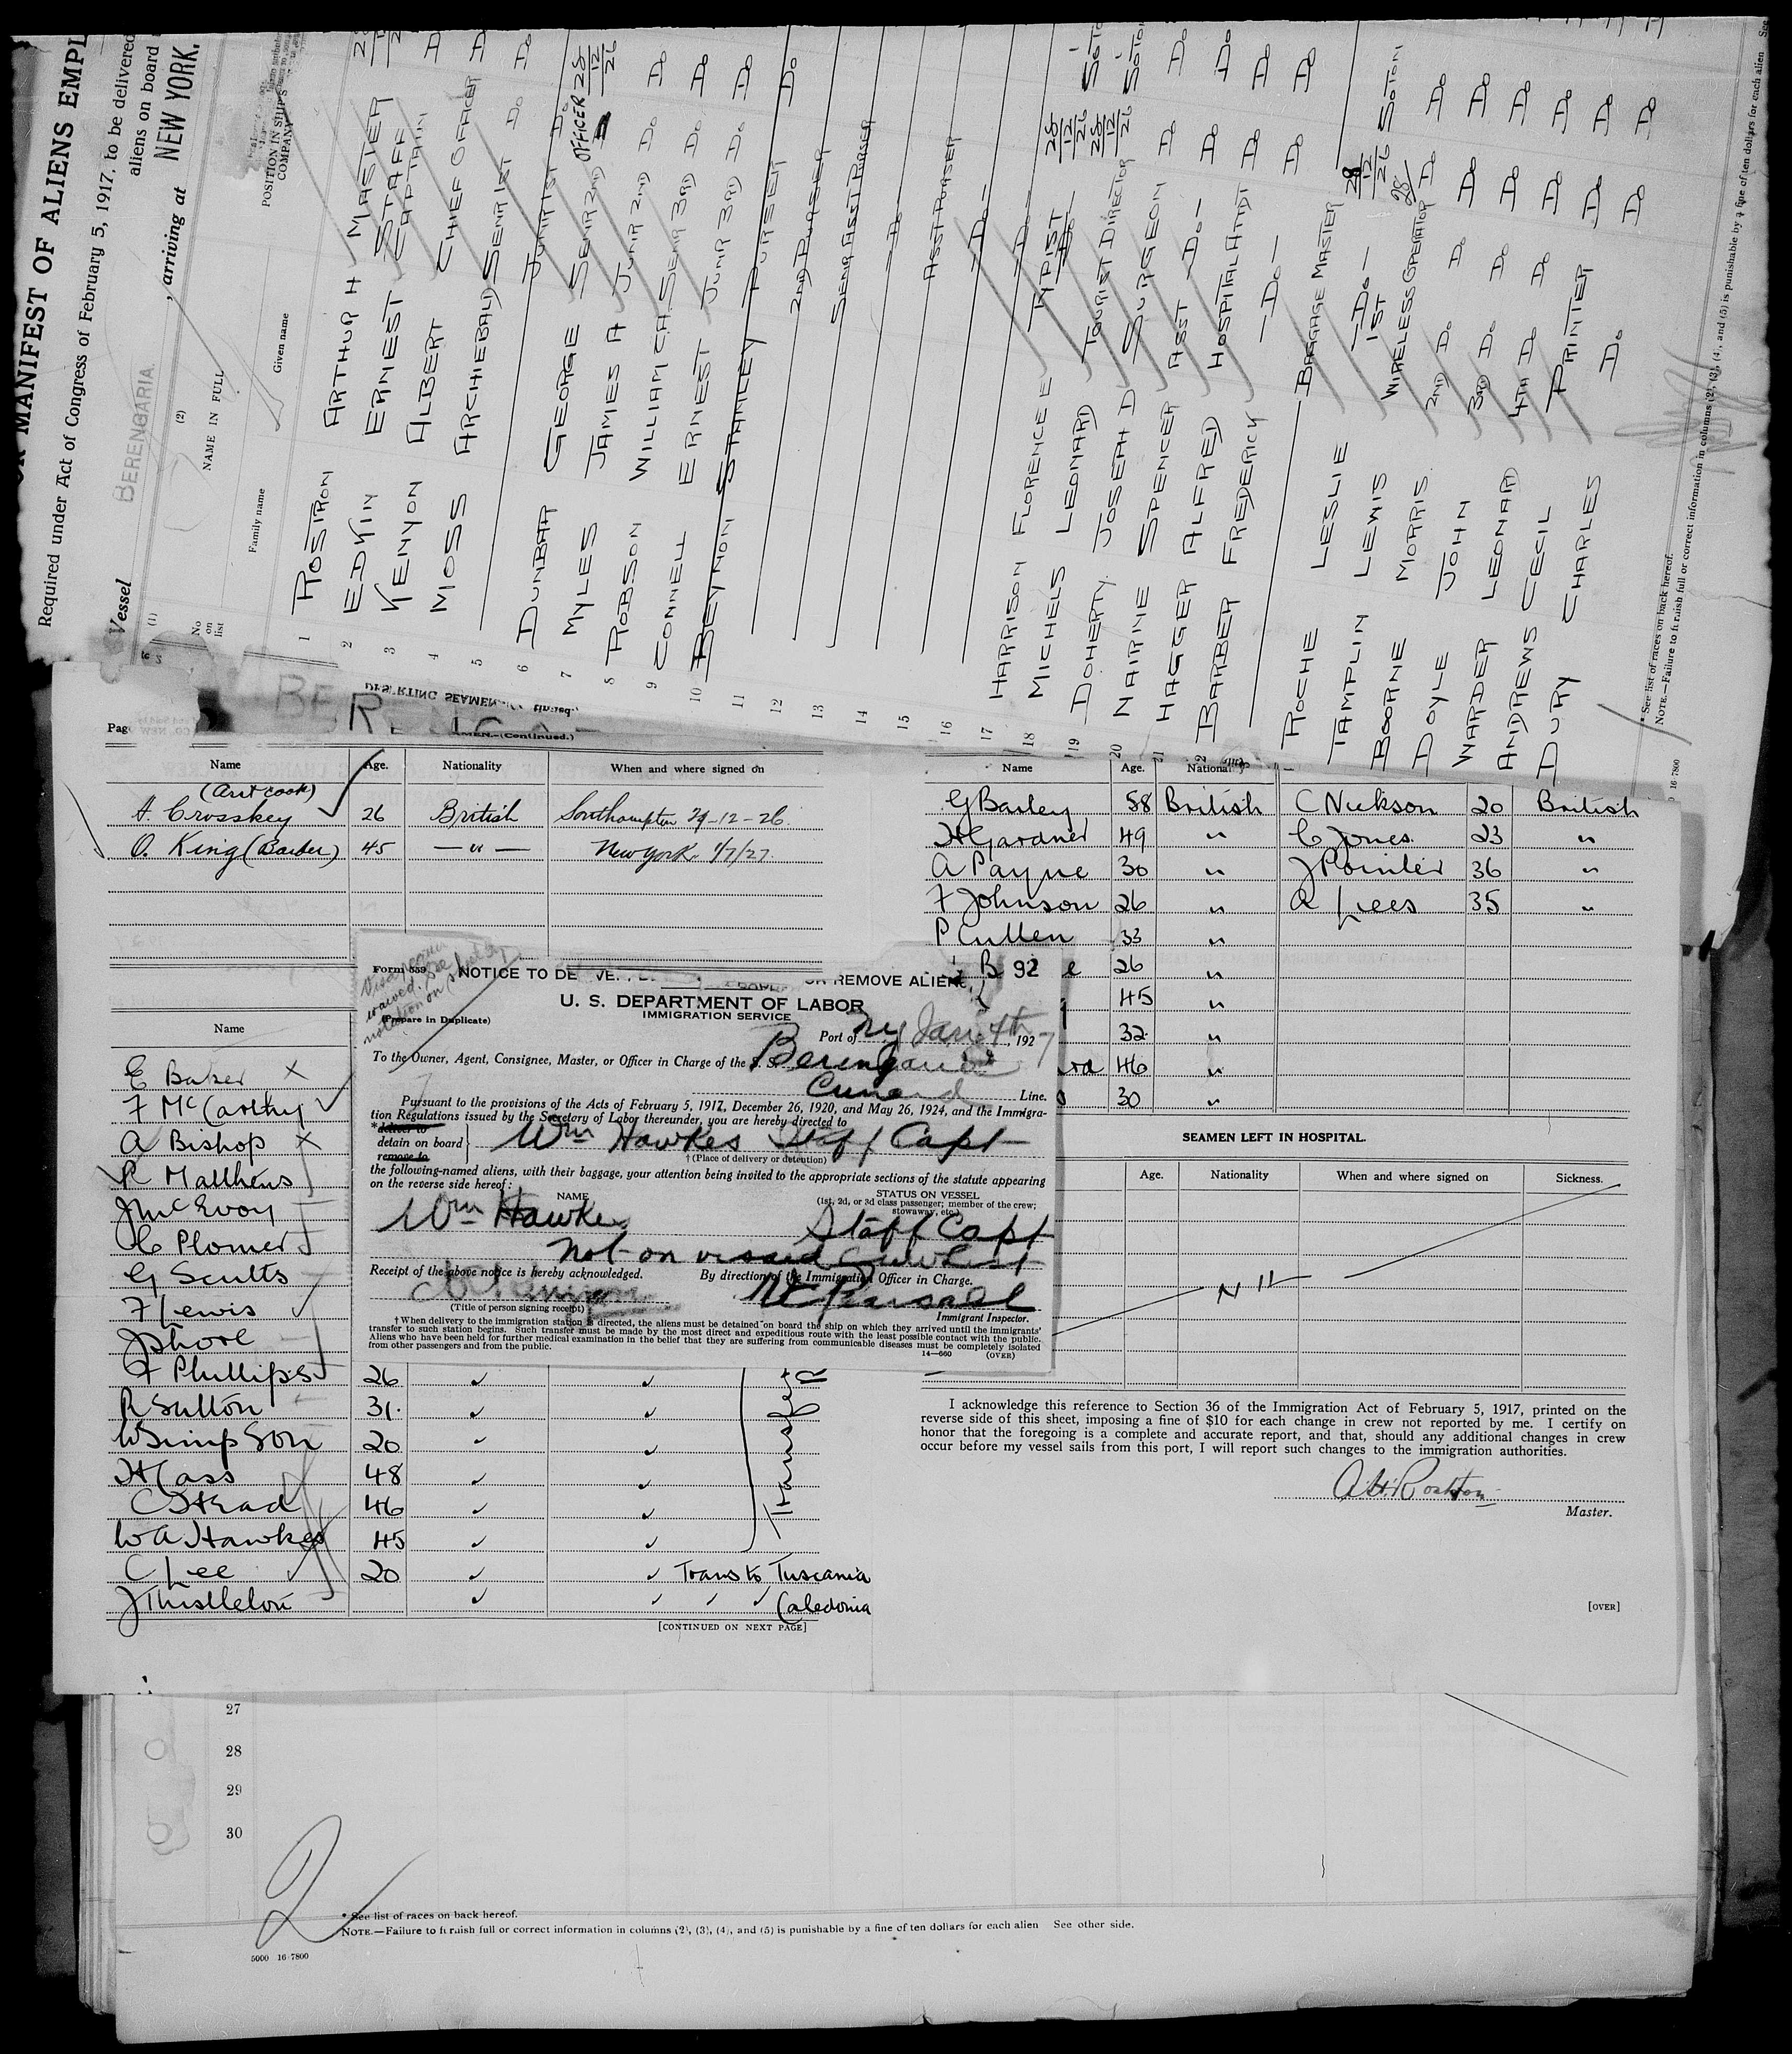 MANIFEST OF ALIENS EMPL
Required under Act of Congress of February 5, 1917, to be delivered
aliens on board
Vessel BERENGARIA , arriving at NEW YORK.
(1) (2)
No on list
NAME IN FULL
Family name Given name
POSITION IN SHIP'S COMPANY
1 ROSTRON ARTHUR H MASTER
2 EDKIN ERNEST STAFF CAPTAIN
3 KENYON ALBERT CHIEF OFFICER
4 MOSS ARCHIBALD SENR 1ST Do
5 JUNR 1ST Do
6 DUNBAR GEORGE SENR 2ND OFFICER 28/12/26
7 MYLES JAMES A JUNR 2ND Do Do
8 ROBSON WILLIAM C.A. SENR 3RD Do Do
9 CONNELL ERNEST JUNR 3RD Do Do
10 BEYNON STANLEY PURSER Do
11 2ND PURSER
12 SENR ASST PURSER
13 Do
14 ASST PURSER
15 Do
16 Do
17 HARRISON FLORENCE E TYPIST 28/12/26 SOTON
18 MICHELS LEONARD TOURIST DIRECTOR 28/12/26 SOTON
19 DOHERTY JOSEPH D SURGEON Do Do
20 NAIRNE SPENCER ASST Do Do Do
21 HAGGER ALFRED HOSPITAL ATTDT Do Do
BARBER FREDERICK Do Do Do
ROCHE LESLIE BAGGAGE MASTER 28/12/26 SOTON
TAMPLIN LEWIS 1ST WIRELESS OPERATOR Do Do
BOORNE MORRIS 2ND Do Do Do Do
DOYLE JOHN 3RD Do Do Do Do
WARDER LEONARD 4TH Do Do Do Do
ANDREWS CECIL PRINTER Do Do
DURY CHARLES Do Do Do
* See list of races on back hereof.
NOTE.—Failure to furnish full or correct information in columns (2), (3), (4), and (5) is punishable by a fine of ten dollars for each alien See
16-7800
DESERTING SEAMEN
Page
MEN.—(Continued.)
Name Age. Nationality When and where signed on
(Asst cook)
A. Crosskey 26 British Southampton 29-12-26.
O. King (Barber) 45 — " — New York. 1/7/27.
Name Age. Nationality
G Basley 58 British C Nickson 20 British
H Gardner 49 " C Jones 23 "
A Payne 30 " J Pointer 36 "
F Johnson 26 " A Lees 35 "
P Cullen 33 "
26 "
45 "
32 "
46 "
30 "
B 92
Form 559
NOTICE TO DE OR REMOVE ALIENS
U. S. DEPARTMENT OF LABOR
IMMIGRATION SERVICE
(Prepare in Duplicate)
Port of NY Jan. 4th, 1927
To the Owner, Agent, Consignee, Master, or Officer in Charge of the S. S. Berengaria
Cunard Line.
Pursuant to the provisions of the Acts of February 5, 1917, December 26, 1920, and May 26, 1924, and the Immigra-
tion Regulations issued by the Secretary of Labor thereunder, you are hereby directed to
* deliver to
detain on board
remove to
Wm Hawkes Staff Capt
† (Place of delivery or detention)
the following-named aliens, with their baggage, your attention being invited to the appropriate sections of the statute appearing
on the reverse side hereof:
NAME STATUS ON VESSEL
(1st, 2d, or 3d class passenger; member of the crew; stowaway, etc.)
Wm Hawkes Staff Capt
Not on visaed crew list
Receipt of the above notice is hereby acknowledged. By direction of the Immigration Officer in Charge.
(Title of person signing receipt) Immigrant Inspector.
† When delivery to the immigration station is directed, the aliens must be detained on board the ship on which they arrived until the immigrants'
transfer to such station begins. Such transfer must be made by the most direct and expeditious route with the least possible contact with the public.
Aliens who have been held for further medical examination in the belief that they are suffering from communicable diseases must be completely isolated
from other passengers and from the public.
14—660 (OVER)
Name
E Baker
F McCarthy
A Bishop
R Matthews
J McEvoy
C Plomer
G Scults
F Lewis
J Shore
F Phillips 26
R Sutton 31
W Simpson 20
H Cass 48
C Stead 46
W A Hawkes 45
C Lee 20 Trans to Tuscania
J Thistleton Caledonia
[CONTINUED ON NEXT PAGE]
SEAMEN LEFT IN HOSPITAL.
Age. Nationality When and where signed on Sickness.
Nil
I acknowledge this reference to Section 36 of the Immigration Act of February 5, 1917, printed on the
reverse side of this sheet, imposing a fine of $10 for each change in crew not reported by me. I certify on
honor that the foregoing is a complete and accurate report, and that, should any additional changes in crew
occur before my vessel sails from this port, I will report such changes to the immigration authorities.
A.H. Rostron
Master.
[OVER]
27
28
29
30
2
* See list of races on back hereof.
NOTE.—Failure to furnish full or correct information in columns (2), (3), (4), and (5) is punishable by a fine of ten dollars for each alien See other side.
5000 16-7800